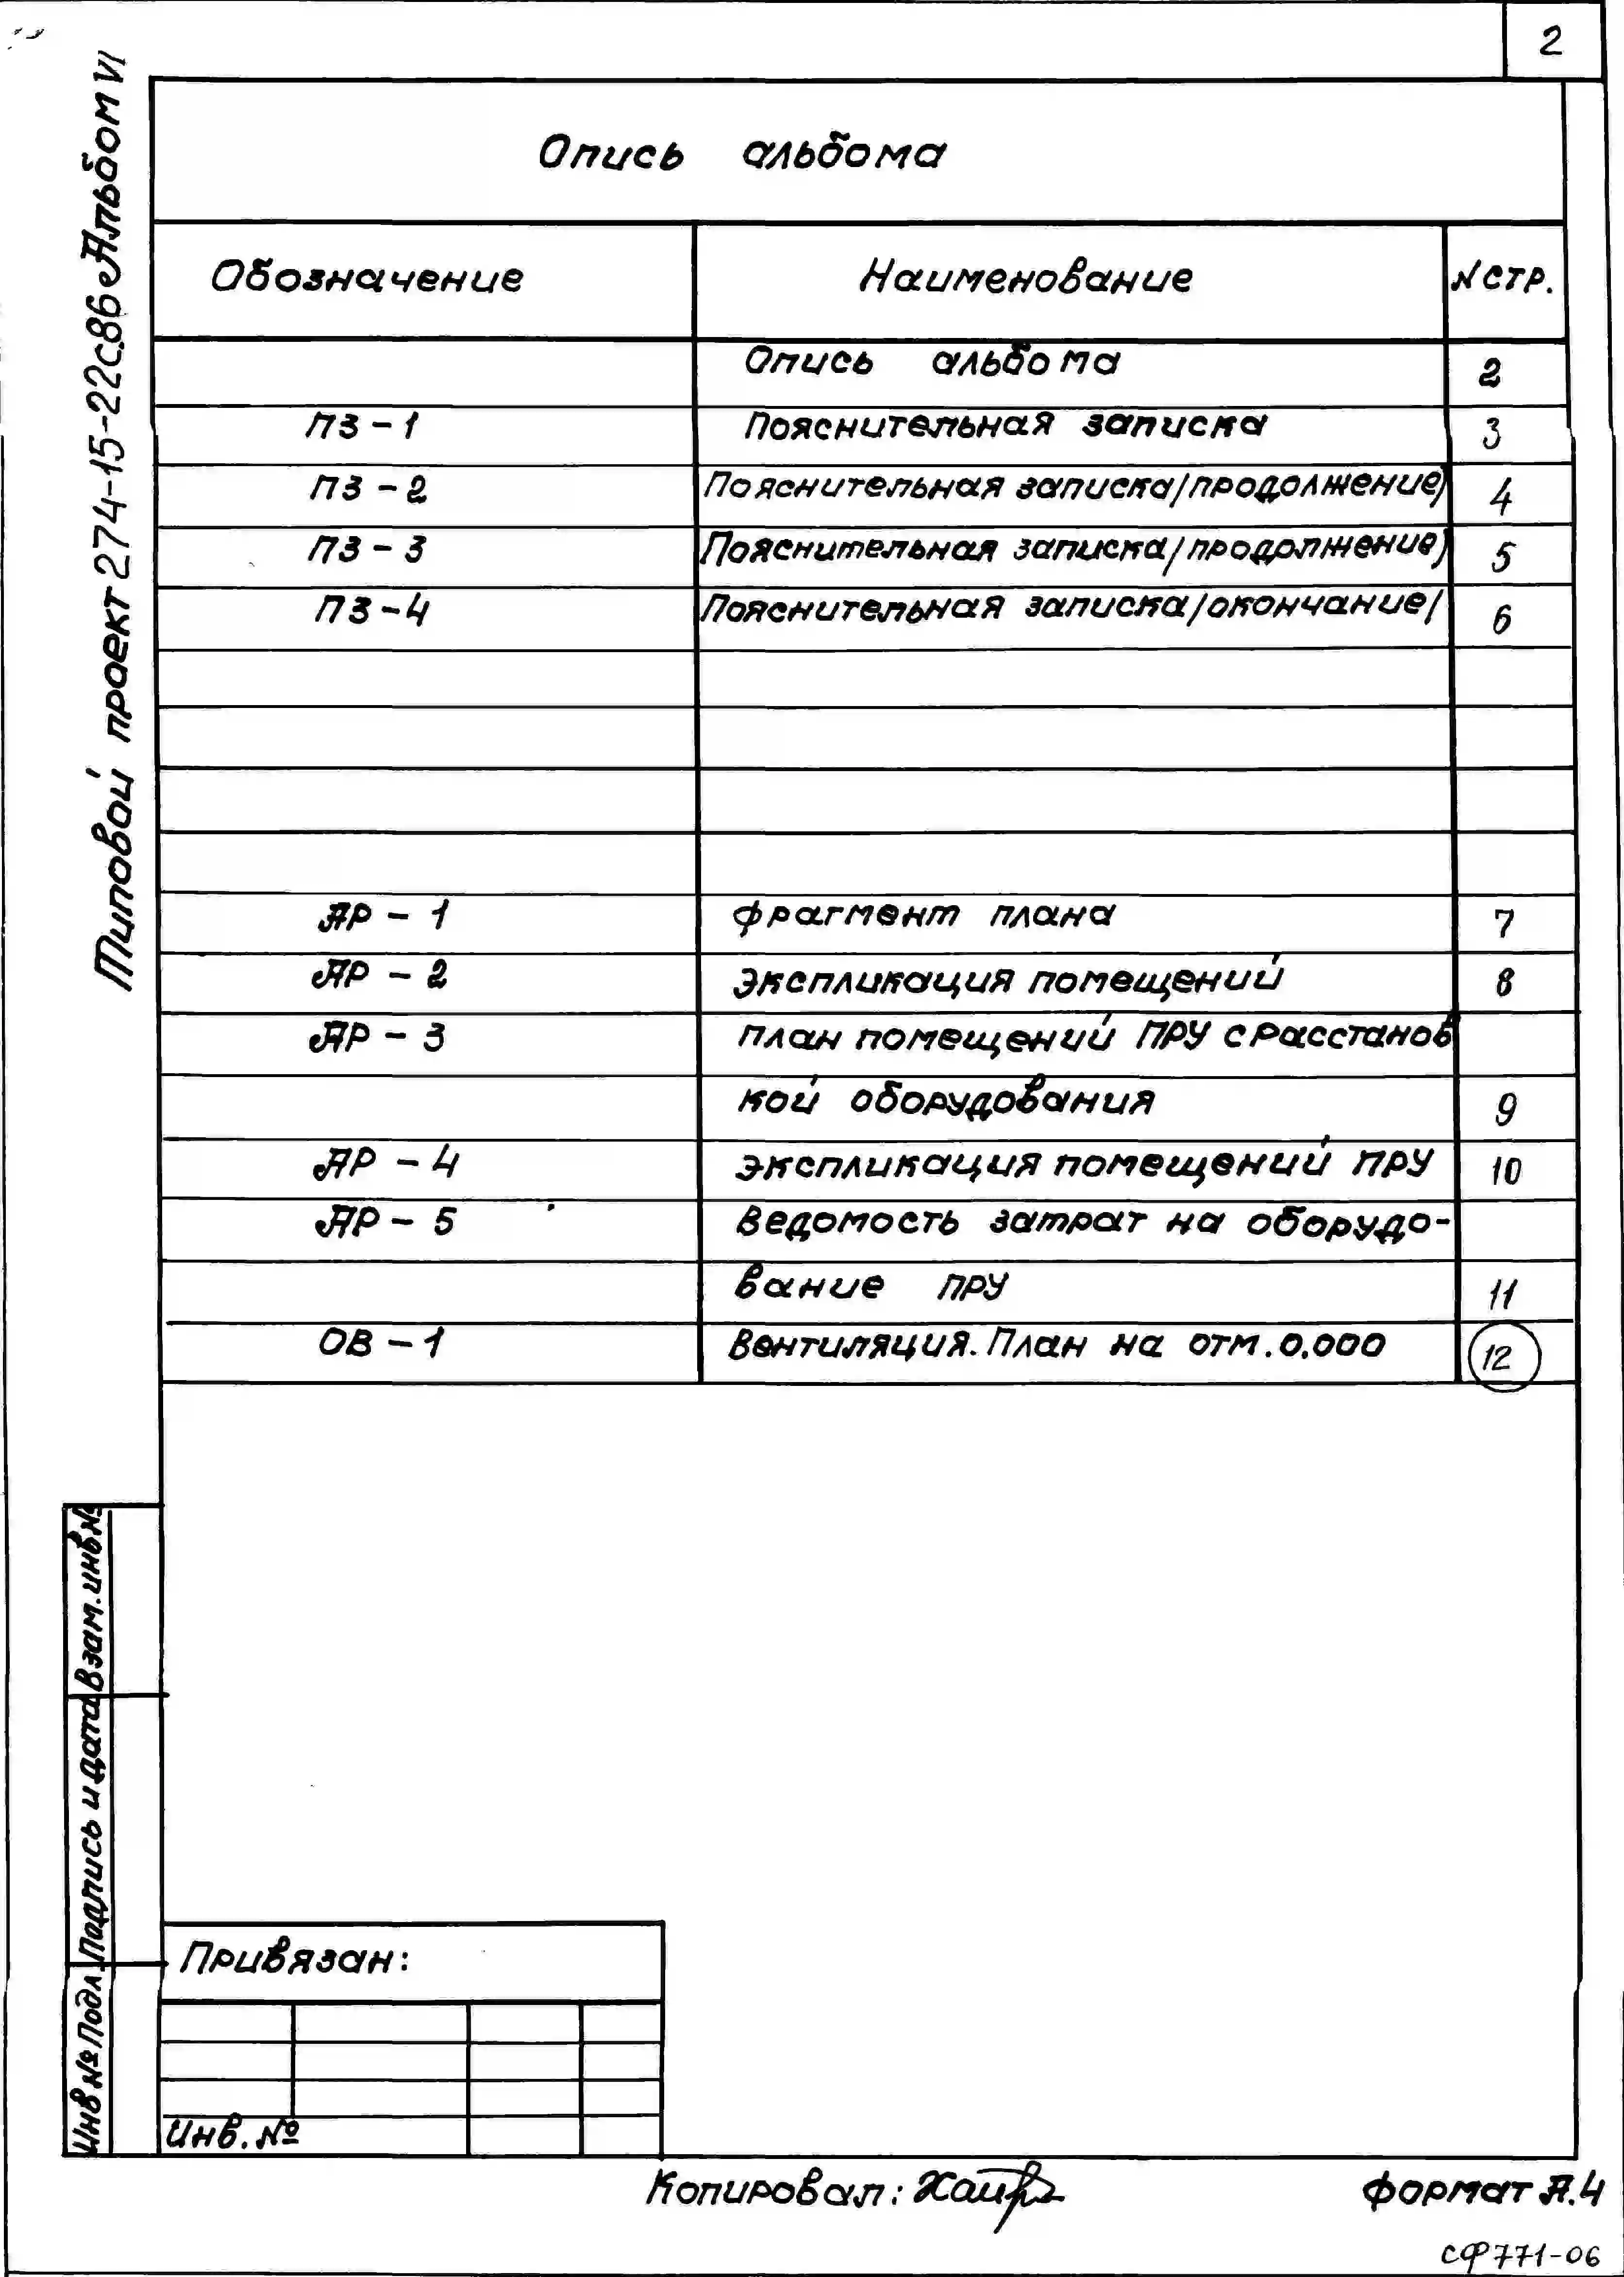 2
Типовой проект 274-15-22с.86 Альбом VI
Опись альбома
Обозначение Наименование N стр.
Опись альбома 2
ПЗ-1 Пояснительная записка 3
ПЗ-2 Пояснительная записка/продолжение/ 4
ПЗ-3 Пояснительная записка/продолжение/ 5
ПЗ-4 Пояснительная записка/окончание/ 6
АР-1 фрагмент плана 7
АР-2 экспликация помещений 8
АР-3 план помещений ПРУ с расстанов
кой оборудования 9
АР-4 экспликация помещений ПРУ 10
АР-5 Ведомость затрат на оборудо-
вание ПРУ 11
ОВ-1 Вентиляция. План на отм. 0.000 12
Взам. инв.№
Подпись и дата
Инв № Подл.
Привязан:
Инв. №
Копировал:
формат А.4
СФ 771-06